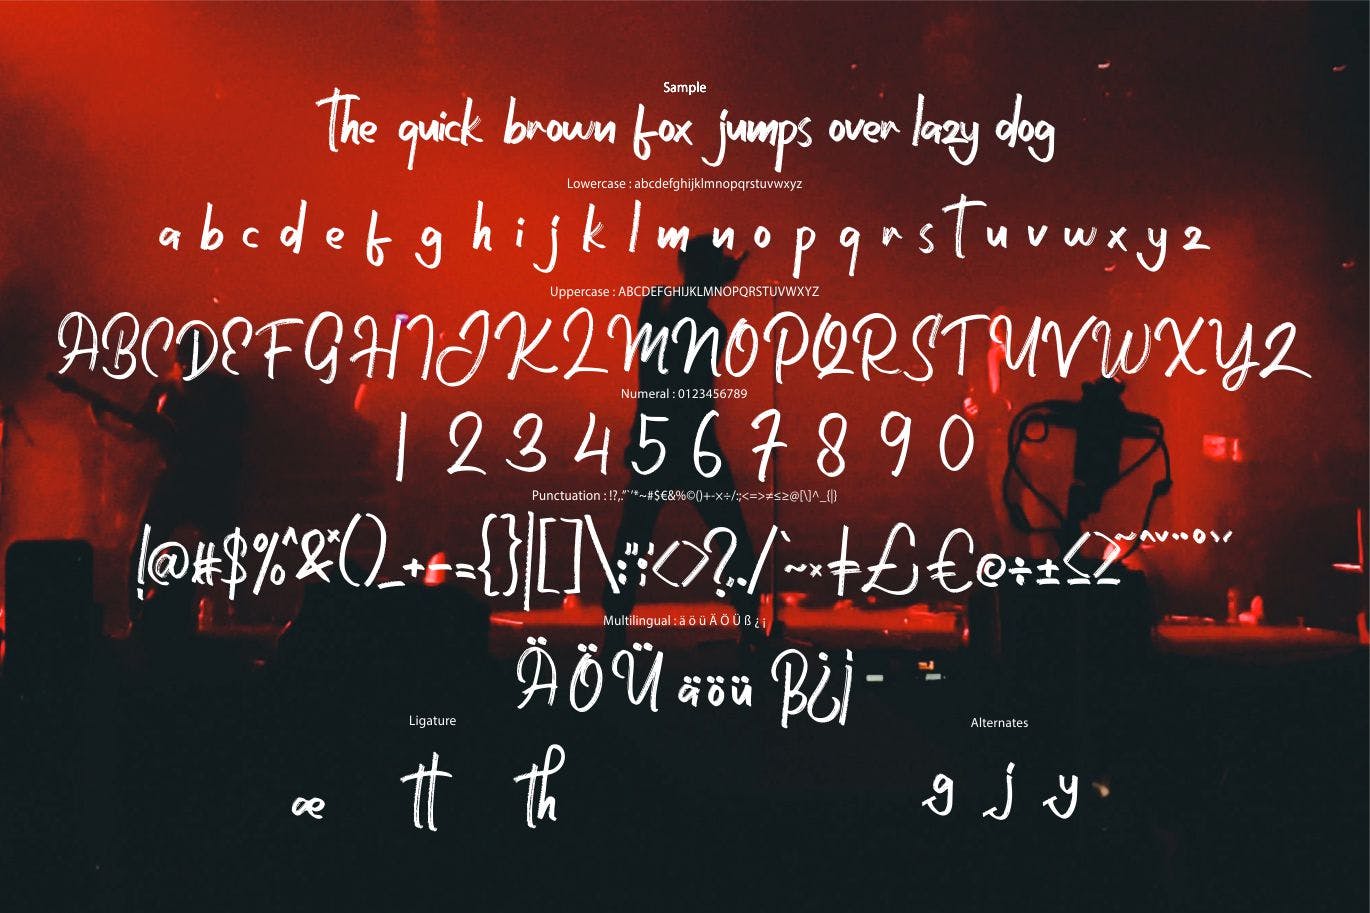 Sample
The quick brown fox jumps over lazy dog
Lowercase : abcdefghijklmnopqrstuvwxyz
a b c d e f g h i j k l m n o p q r s t u v w x y z
Uppercase : ABCDEFGHIJKLMNOPQRSTUVWXYZ
ABCDEFGHIJKLMNOPQRSTUVWXYZ
Numeral : 0123456789
1 2 3 4 5 6 7 8 9 0
Punctuation : !?,."`'*~#$€&%©()+-×÷/:;<=>≠≤≥@[\]^_{|}
!@#$%^&*()_+-={}|[]\:";'<>?,./`~×≠£€©÷±≤≥~^ˇ¨°`´
Multilingual : ä ö ü Ä Ö Ü ß ¿ ¡
Ä Ö Ü ä ö ü ß ¿ ¡
Ligature
Alternates
æ tt th
g j y